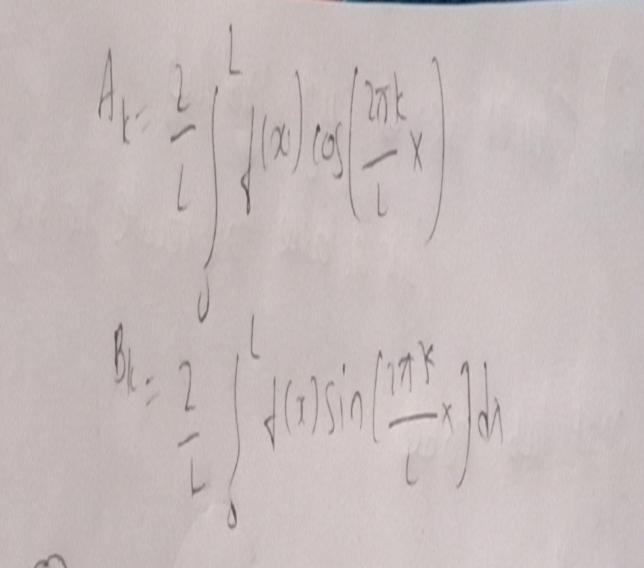 A_k = 2/L ∫_0^L f(x) cos(2πk/L x)
B_k = 2/L ∫_0^L f(x) sin[2πk/L x] dx